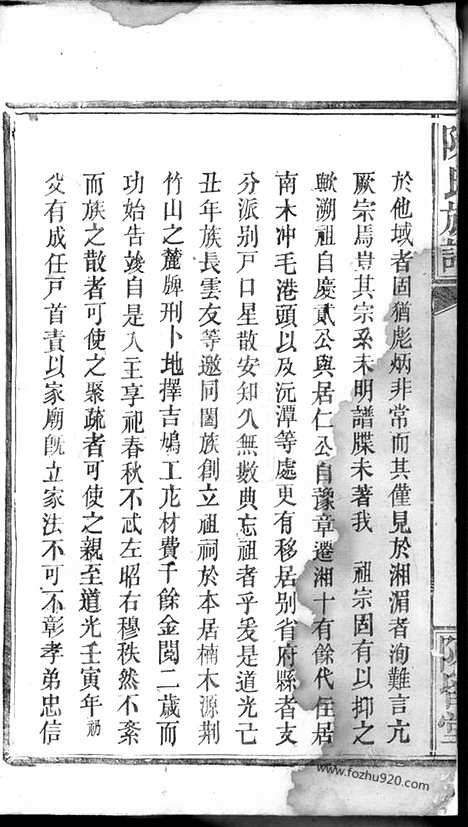 於他域者固猶彪炳非常而其僅見於湘湄者洵難言亢
厥宗焉豈其宗系未明譜牒未著我　祖宗固有以抑之
歟溯祖自慶貳公與居仁公自豫章遷湘十有餘代住居
南木冲毛港頭以及沅潭等處更有移居别省府縣者支
分派别戸口星散安知久無數典忘祖者乎爰是道光己
丑年族長雲友等邀同闔族創立祖祠於本居楠木源荆
竹山之麓牌刑卜地擇吉鳩工庀材費千餘金閱二歲而
功始告竣自是入主享祀春秋不忒左昭右穆秩然不紊
而族之散者可使之聚疏者可使之親至道光壬寅年
交有成任戸首責以家廟旣立家法不可不彰孝弟忠信
陳氏族譜
www.fozhu920.com